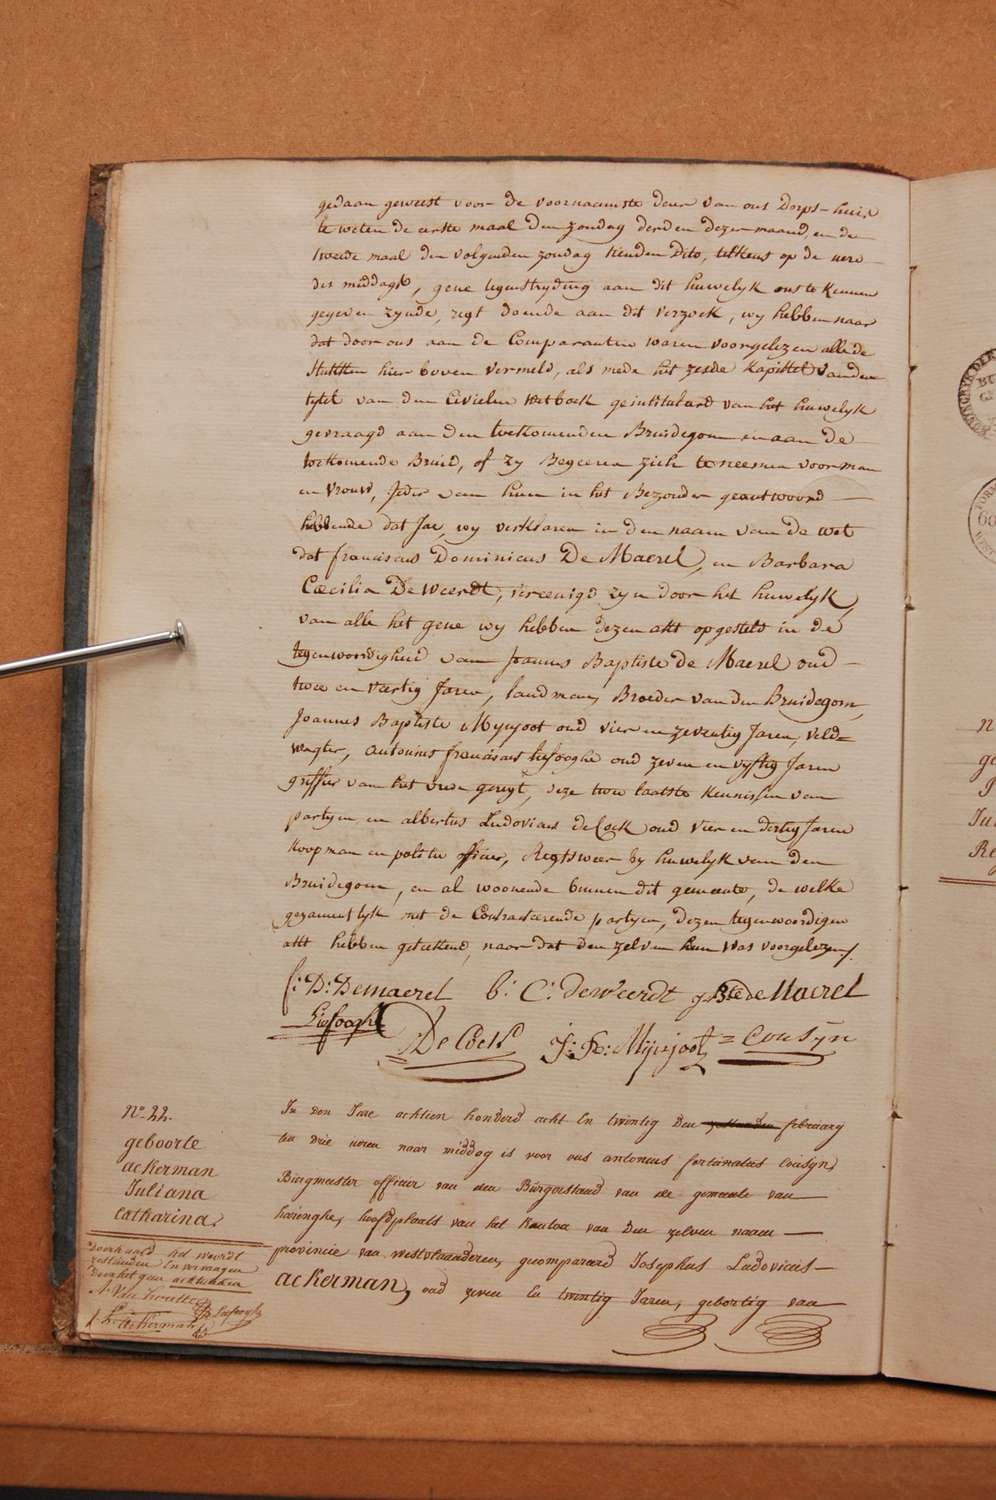 gedaan geweest voor de voornaemste deur van ons Dorps-huis
te weten de eerste maal den zondag derden dezer maand, en de
tweede maal den volgenden zondag tienden Dito, telkens op de uere
des middags, gene tegenstryding aan dit huwelyk ons te kennen
gegeven zynde, regt doende aan dit verzoek, wy hebben naar
dat door ons aan de Comparanten waren voorgelezen alle de
stukken hier boven vermeld, als mede het zesde kapittel van den
tytel van den Civielen Wetboek geintituleerd van het huwelyk
gevraagd aan den toekomenden Bruidegom en aan de
toekomende Bruid, of zy Begeeren zich te neemen voor man
en vrouw, Ieder van hun in het Bezonder geantwoord
hebbende dat Jae, wy verklaren in den naam van de wet
dat franciscus Dominicus De Maerel, en Barbara
Cæcilia De Weerdt, vereenigd zyn door het huwelyk,
van alle het gene wy hebben dezen akt opgesteld in de
tegenwoordigheid van Joannes Baptiste de Maerel oud
twee en veertig Jaren, landman, Broeder van den Bruidegom,
Joannes Baptiste Mynjoot oud vier en zeventig Jaren, veld=
wagter, Antonius franciscus liefooghe oud zeven en vyftig Jaren
griffier van het vrede geregt, deze twee laatste kennissen van
partyen en albertus Ludovicus deCock oud vier en dertig Jaren
koopman en politie officier, Regtsweer by huwelyk van den
Bruidegom, en al woonende binnen dit gemeente, de welke
gezamentlyk met de Contracteerende partyen, dezen tegenwoordigen
akt hebben geteekend, naar dat den zelven hun was voorgelezen/.
f: D: Demaerel b: C: deweerdt j Bte de Maerel
Liefooghe
De Cock J: B: Mynjoot = Cousyn
N.o 22.
geboorte
ackerman
Juliana
Catharina.
In den Jare achtien honderd acht En twintig Den februarÿ
ten drie uren naar middag is voor ons antoneus fortunatus Cousyn,
Burgmeester officier van den Burgerstand van de gemeente van
haringhe, hoofdplaats van het kanton van den zelven naam
provincie van westvlaanderen, gecompareerd Josephus Ludovicus
ackerman, oud zeven En twintig Jaren, geboortig van
Doorhaald het woordt
En vervangen
door het gene achtsten
L. ackerman